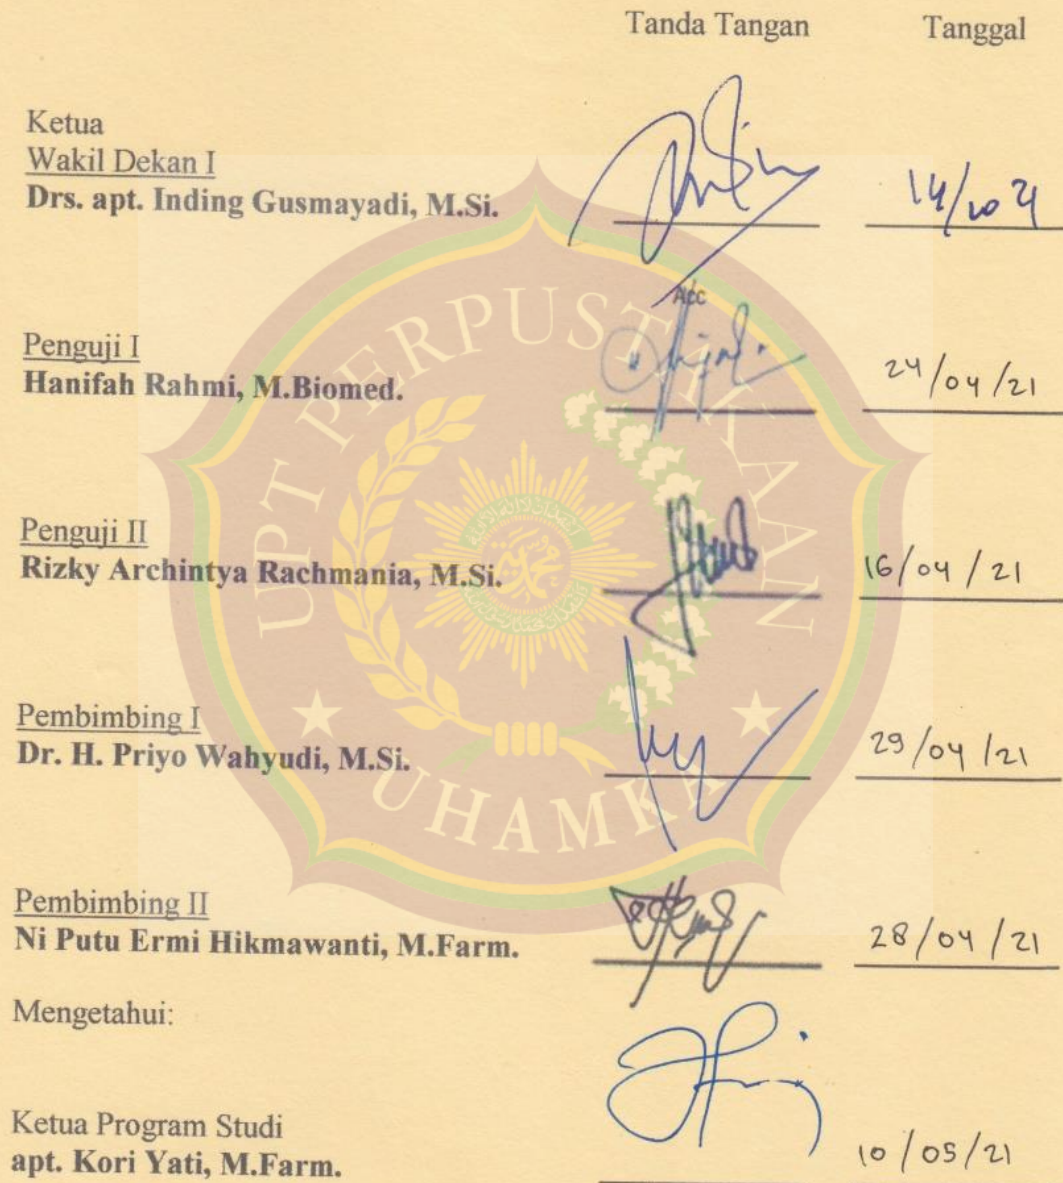 Tanda Tangan Tanggal
Ketua
Wakil Dekan I
Drs. apt. Inding Gusmayadi, M.Si.
14/10 21
Acc
Penguji I
Hanifah Rahmi, M.Biomed.
24/04/21
Penguji II
Rizky Archintya Rachmania, M.Si.
16/04/21
Pembimbing I
Dr. H. Priyo Wahyudi, M.Si.
29/04/21
Pembimbing II
Ni Putu Ermi Hikmawanti, M.Farm.
28/04/21
Mengetahui:
Ketua Program Studi
apt. Kori Yati, M.Farm.
10/05/21
UPT PERPUSTAKAAN
UHAMKA